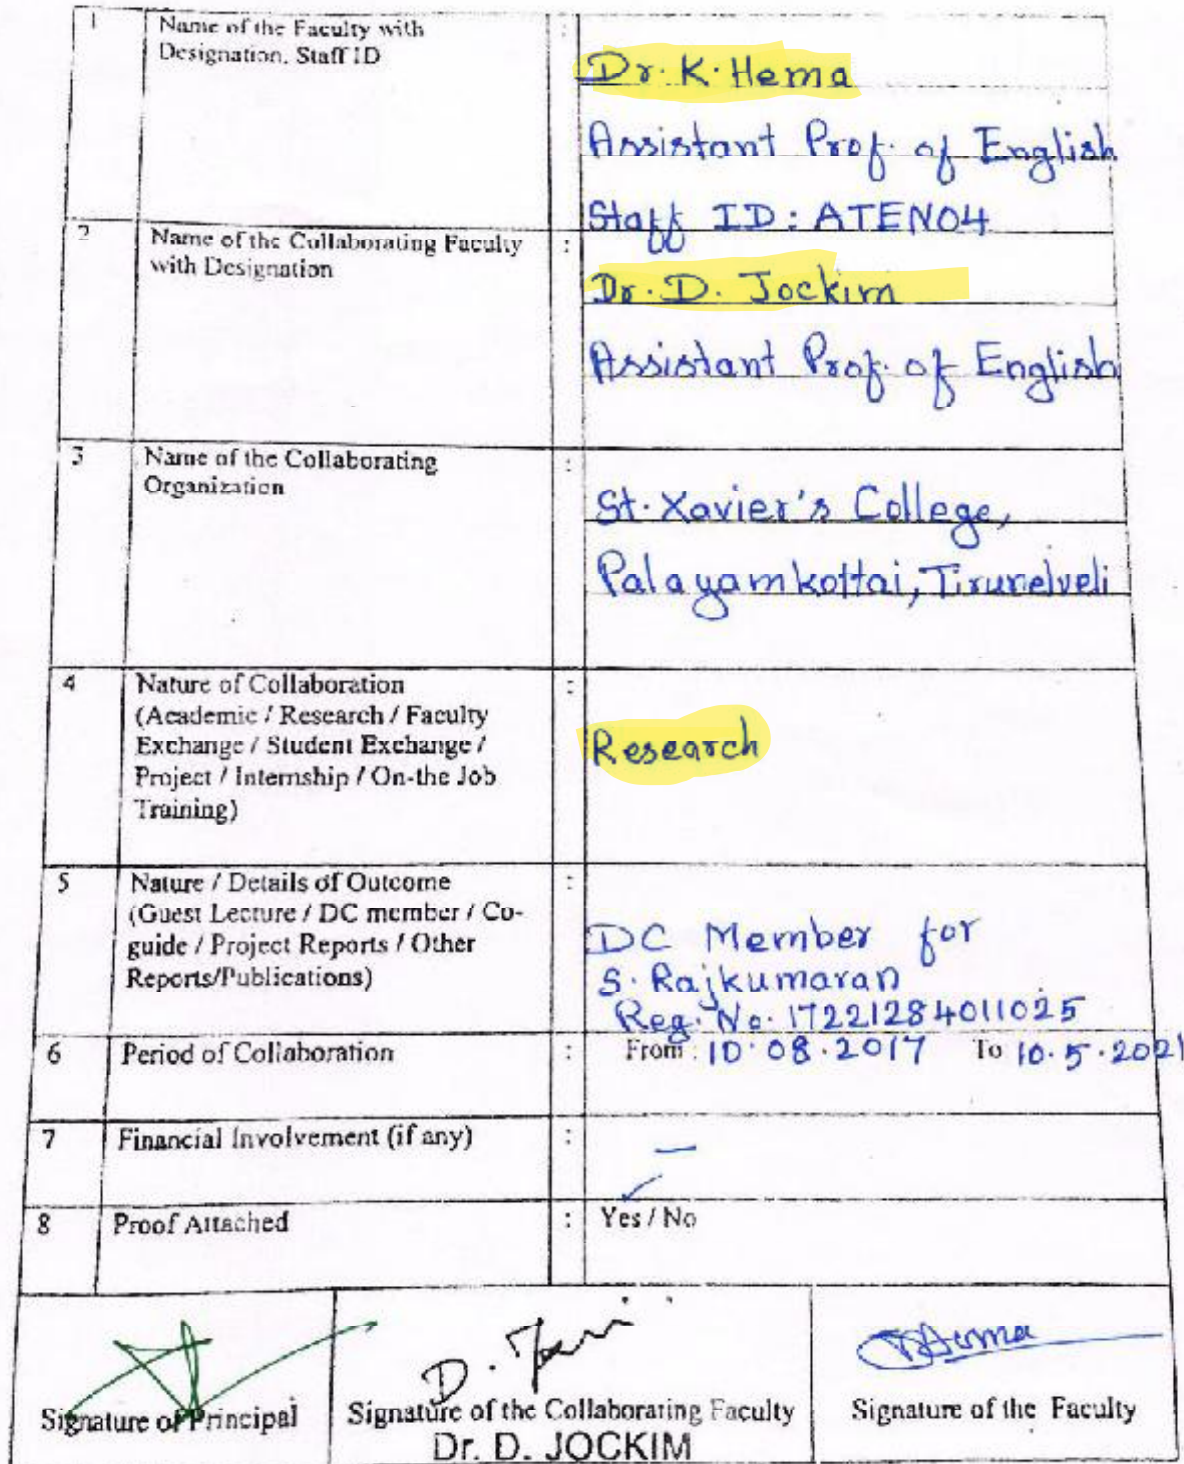 1 Name of the Faculty with : Dr. K. Hema
Designation, Staff ID
Assistant Prof. of English
Staff ID : ATEN04
2 Name of the Collaborating Faculty : Dr. D. Jockim
with Designation
Assistant Prof. of English
3 Name of the Collaborating :
Organization
St. Xavier's College,
Palayamkottai, Tirunelveli
4 Nature of Collaboration :
(Academic / Research / Faculty
Exchange / Student Exchange / Research
Project / Internship / On-the Job
Training)
5 Nature / Details of Outcome :
(Guest Lecture / DC member / Co-
guide / Project Reports / Other
Reports/Publications)
DC Member for
S. Rajkumaran
Reg. No. 17221284011025
6 Period of Collaboration : From : 10.08.2017 To 10.5.2021
7 Financial Involvement (if any) : –
8 Proof Attached : Yes / No
D. Jockim
Hema
Signature of Principal
Signature of the Collaborating Faculty
Signature of the Faculty
Dr. D. JOCKIM